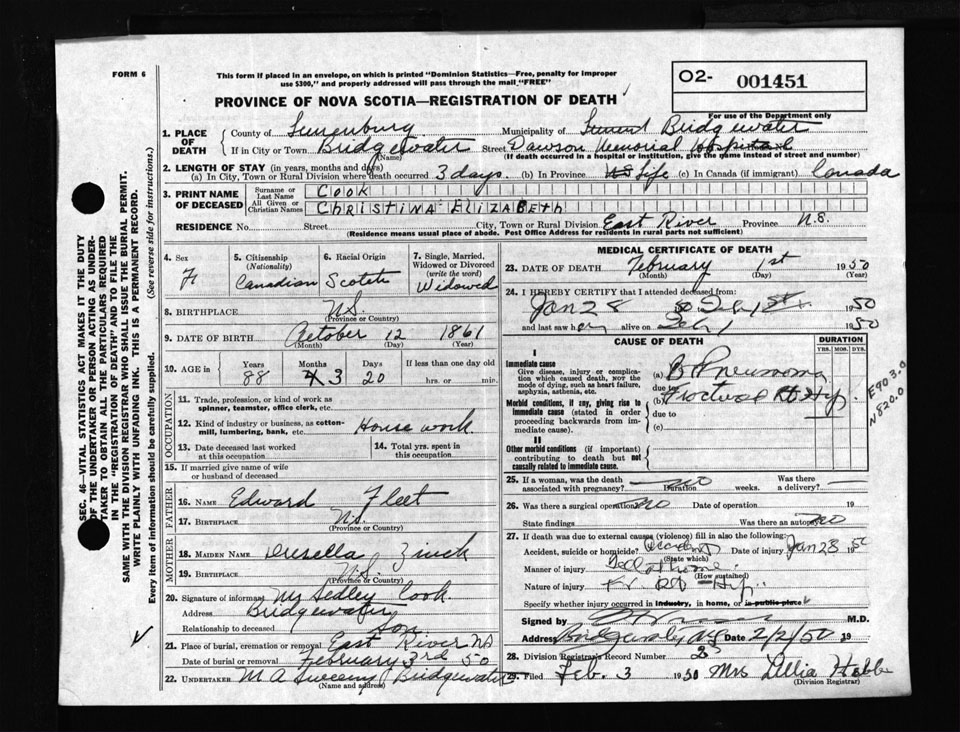 FORM 6
This form if placed in an envelope, on which is printed "Dominion Statistics—Free, penalty for improper
use $300," and properly addressed will pass through the mail "FREE"
O2- 001451
For use of the Department only
PROVINCE OF NOVA SCOTIA—REGISTRATION OF DEATH
1. PLACE OF DEATH
County of Lunenburg Municipality of Bridgewater
If in City or Town Bridgewater Street Dawson Memorial Hospital
(Name) (If death occurred in a hospital or institution, give the name instead of street and number)
2. LENGTH OF STAY (in years, months and days)
(a) In City, Town or Rural Division where death occurred 3 days. (b) In Province Life (c) In Canada (if immigrant) Canada
3. PRINT NAME OF DECEASED
Surname or Last Name Cook
All Given or Christian Names CHRISTINA ELIZABETH
RESIDENCE No. Street City, Town or Rural Division East River Province N.S.
(Residence means usual place of abode. Post Office Address for residents in rural parts not sufficient)
SEC. 46—VITAL STATISTICS ACT MAKES IT THE DUTY
OF THE UNDERTAKER OR PERSON ACTING AS UNDER-
TAKER TO OBTAIN ALL THE PARTICULARS REQUIRED
IN THE "REGISTRATION OF DEATH" AND TO FILE THE
SAME WITH THE DIVISION REGISTRAR WHO SHALL ISSUE THE BURIAL PERMIT.
WRITE PLAINLY WITH UNFADING INK. THIS IS A PERMANENT RECORD.
Every item of information should be carefully supplied. (See reverse side for instructions.)
4. Sex F
5. Citizenship (Nationality) Canadian
6. Racial Origin Scotch
7. Single, Married, Widowed or Divorced (write the word) Widowed
8. BIRTHPLACE N.S.
(Province or Country)
9. DATE OF BIRTH October 12 1861
(Month) (Day) (Year)
10. AGE in Years 88 Months 3 Days 20 If less than one day old
hrs. or min.
OCCUPATION
11. Trade, profession, or kind of work as
spinner, teamster, office clerk, etc.
12. Kind of industry or business, as cotton-
mill, lumbering, bank, etc. House work
13. Date deceased last worked
at this occupation
14. Total yrs. spent in
this occupation
15. If married give name of wife
or husband of deceased
FATHER
16. NAME Edward Fleet
17. BIRTHPLACE N.S.
(Province or Country)
MOTHER
18. MAIDEN NAME Drusella Zinck
19. BIRTHPLACE N.S.
(Province or Country)
20. Signature of informant Sedley Cook.
Address Bridgewater
Relationship to deceased Son
21. Place of burial, cremation or removal East River NS
Date of burial or removal February 3rd 50
22. UNDERTAKER M A Sweeny Bridgewater
(Name and address)
MEDICAL CERTIFICATE OF DEATH
23. DATE OF DEATH February 1st 1950
(Month) (Day) (Year)
24. I HEREBY CERTIFY that I attended deceased from:
Jan 28 to Feb 1st 1950
and last saw her alive on Feb 1 1950
CAUSE OF DEATH
DURATION
YRS. MOS. DYS.
I
Immediate cause
Give disease, injury or complica-
tion which caused death, NOT the
mode of dying, such as heart failure,
asphyxia, asthenia, etc.
(a) B Pneumonia
due to
Morbid conditions, if any, giving rise to
immediate cause (stated in order
proceeding backwards from im-
mediate cause).
(b) Fractured Rt Hip.
due to
(c)
E903.0
N820.0
II
Other morbid conditions (if important)
contributing to death but not
causally related to immediate cause.
25. If a woman, was the death
associated with pregnancy? no Duration weeks. Was there
a delivery?
26. Was there a surgical operation? no Date of operation 19
State findings Was there an autopsy? no
27. If death was due to external causes (violence) fill in also the following:
Accident, suicide or homicide? Accident Date of injury Jan 28 1950
(State which)
Manner of injury Fell at home.
(How sustained)
Nature of injury Fx Rt Hip.
Specify whether injury occurred in industry, in home, or in public place
Signed by M.D.
Address Bridgewater N.S. Date 2/2/50 19
28. Division Registrar's Record Number 2
29. Filed Feb. 3 1950 Mrs Lillia
(Division Registrar)